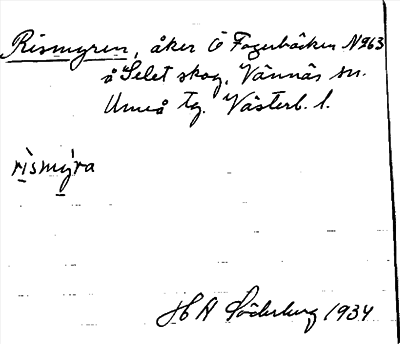 Rismyren, åker Ö Fagerbäcken N 263
å Selet skog. Vännäs sn.
Umeå tg. Västerb. l.
rìsmy̌ra
H A Söderberg 1934